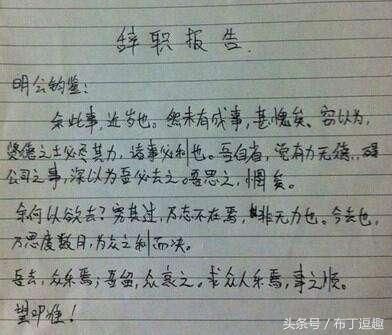 辞职报告.
明公钧鉴:
余此事,近岁也。然未有成事,甚愧矣。窃以为,
贤德之士必尽其力,诸事必利也。吾自省,觉有力无德,碍
公司之事,深以为吾必去之。吾思之,惆矣。
余何以欲去?究其过,乃志不在焉,非无力也。今去也,
乃思度数月,为众之利而决。
吾去,众乐焉,吾留,众哀之。求众人乐焉,事之顺。
望叩准!
头条号/布丁逗趣